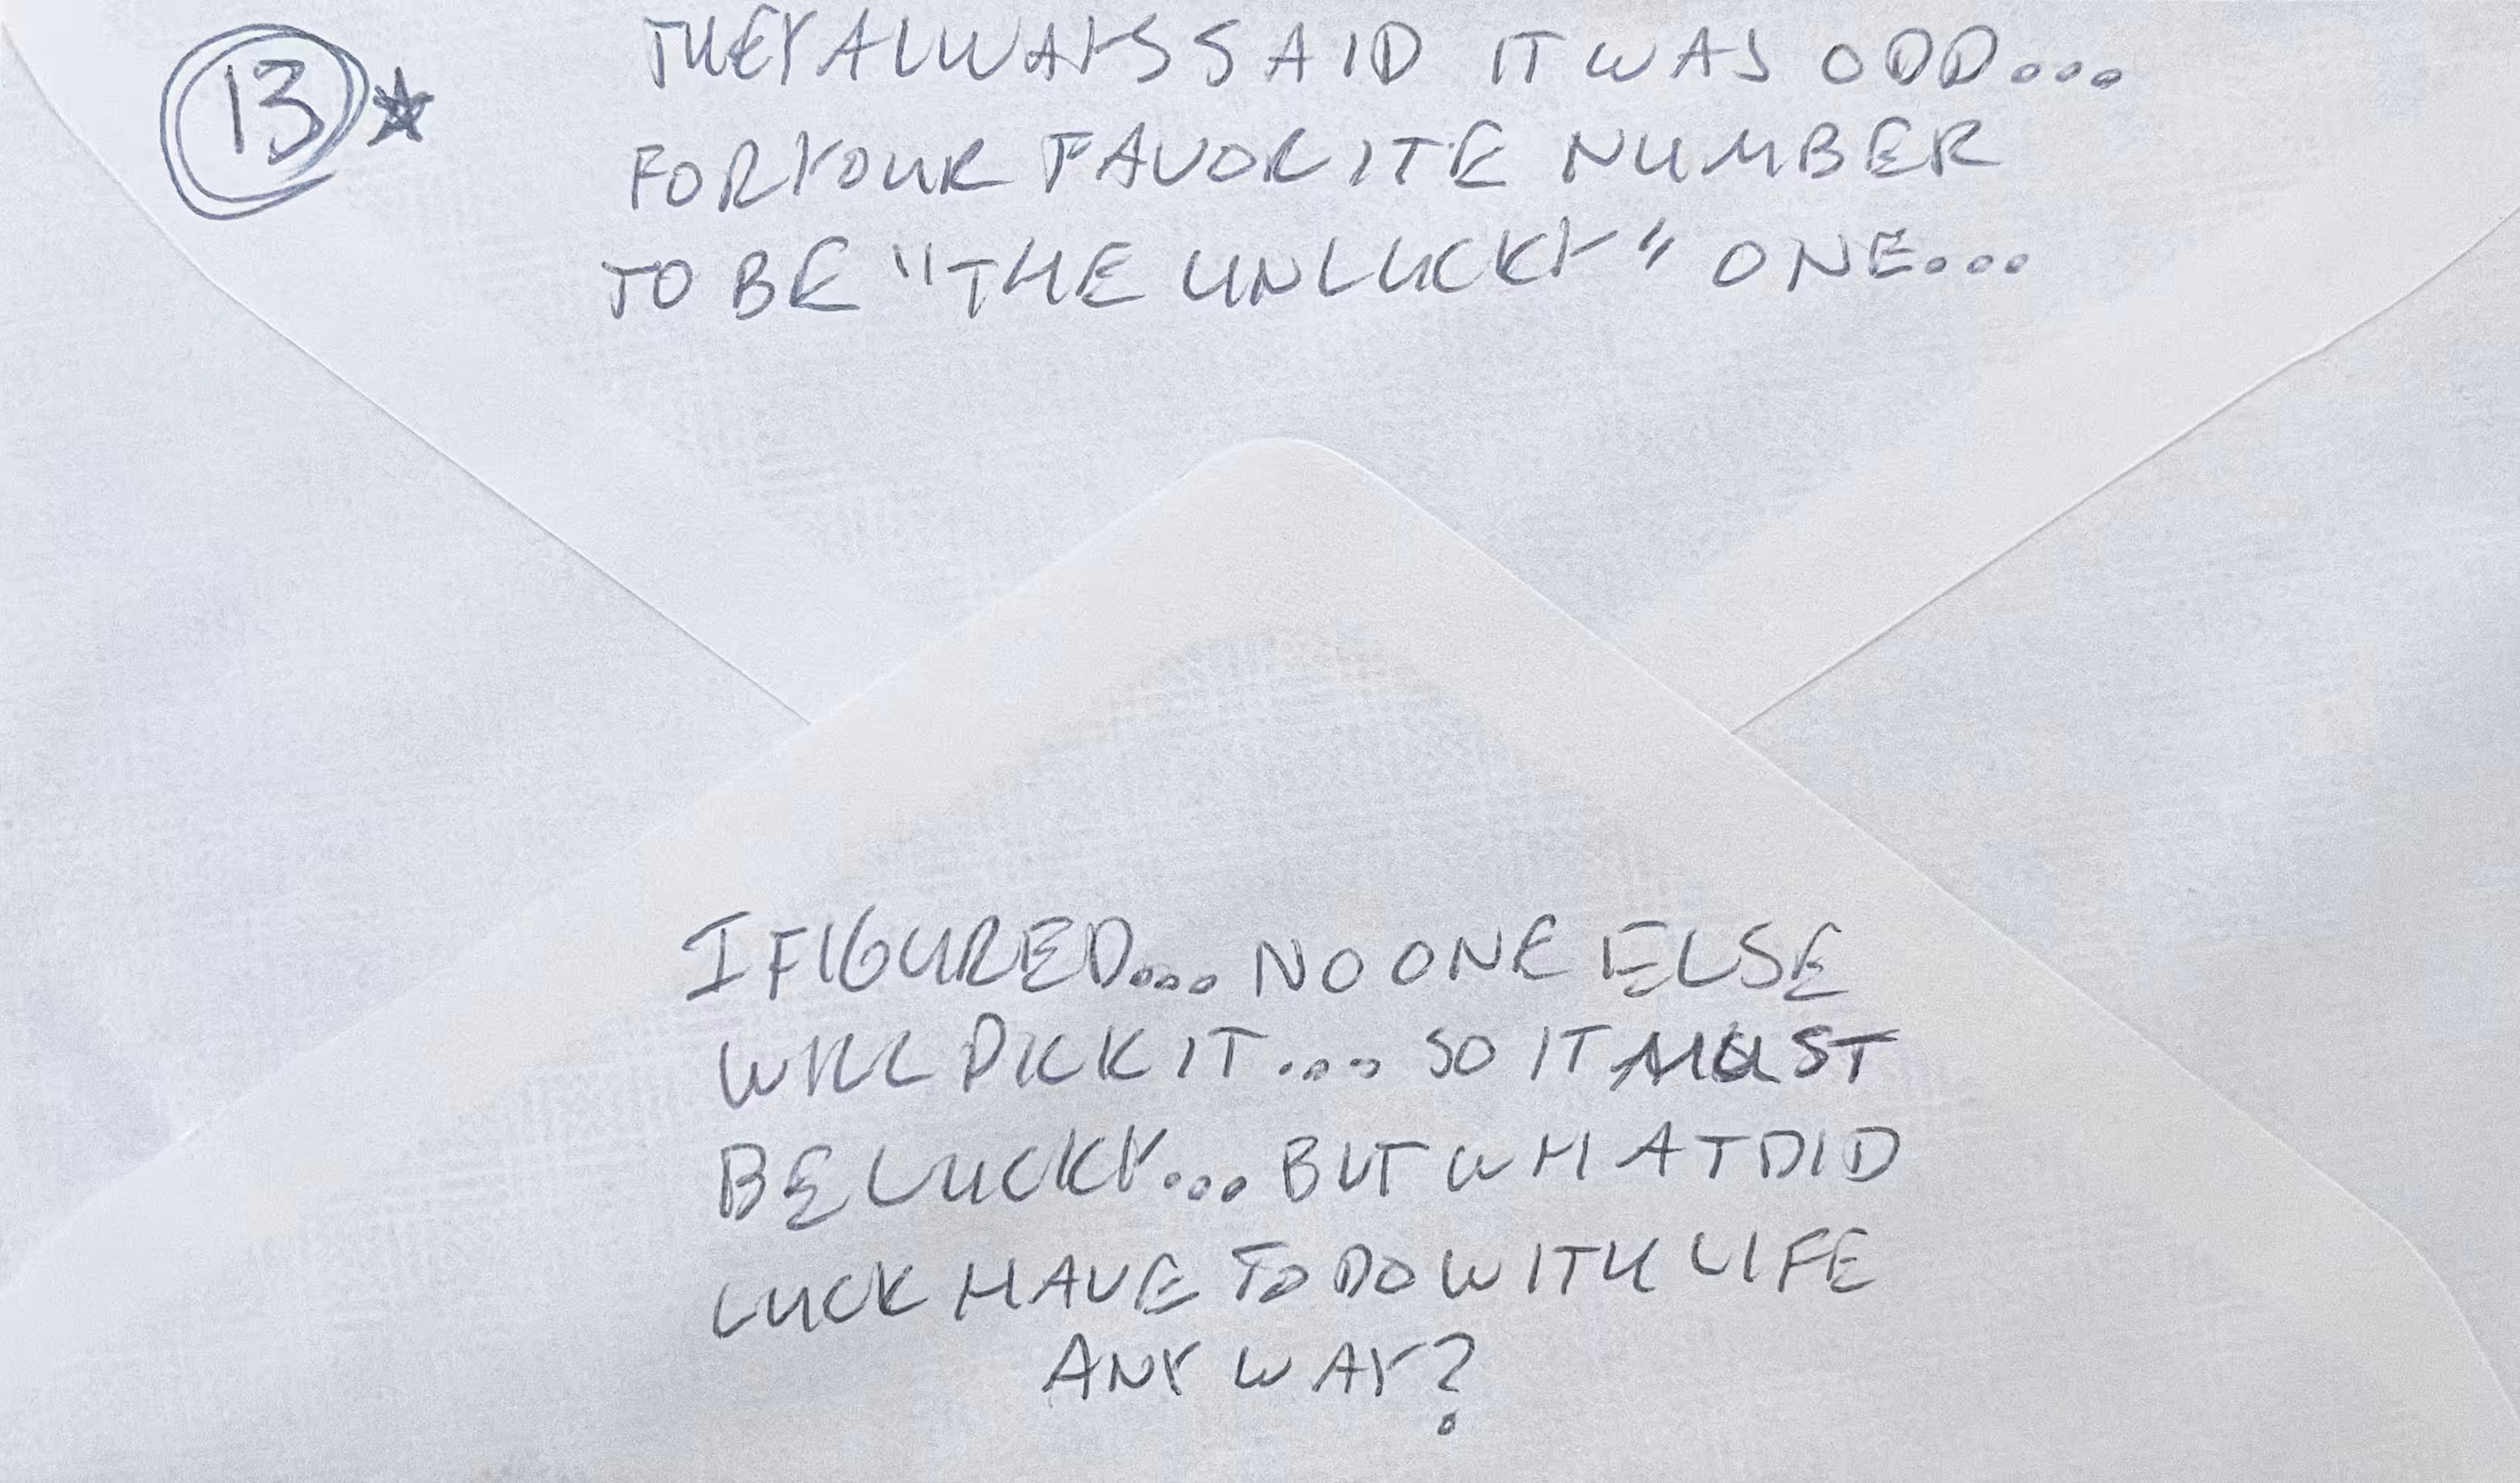 13★
THEY ALWAYS SAID IT WAS ODD...
FOR YOUR FAVORITE NUMBER
TO BE "THE UNLUCKY" ONE...
I FIGURED... NO ONE ELSE
WILL PICK IT.... SO IT MUST
BE LUCKY... BUT WHAT DID
LUCK HAVE TO DO WITH LIFE
ANY WAY?